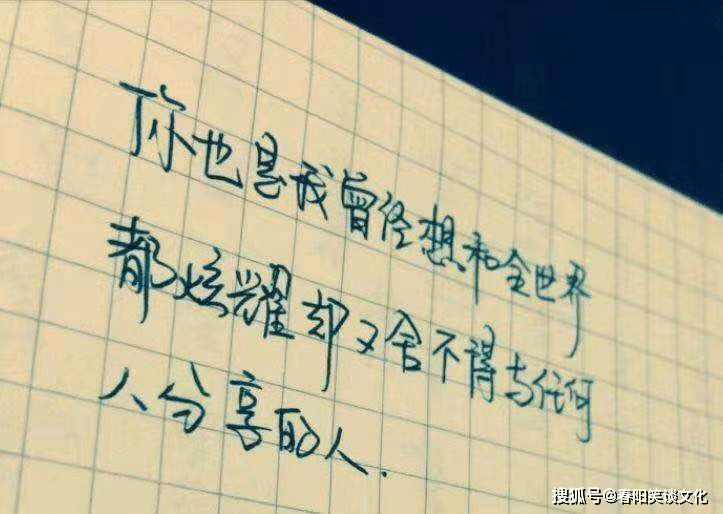 你也是我曾经想和全世界
都炫耀却又舍不得与任何
人分享的人.
搜狐号@春阳笑谈文化